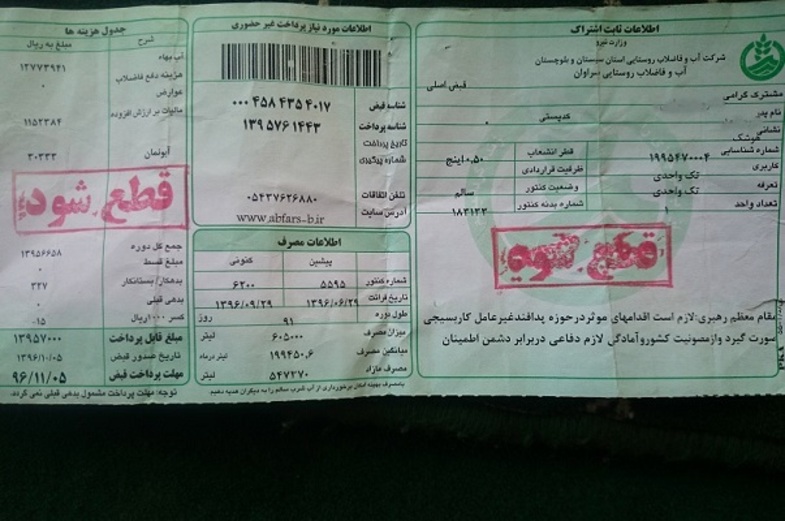 اطلاعات ثابت اشتراک
وزارت نیرو
شرکت آب و فاضلاب روستایی استان سیستان و بلوچستان
آب و فاضلاب روستایی سراوان
قبض اصلی
مشترک گرامی
نام پدر
کدپستی
نشانی
هوشک
شماره شناسایی ۱۹۹۵۴۷۰۰۰۴ قطر انشعاب ۰.۵۰ اینچ
کاربری تک واحدی ظرفیت قراردادی
تعرفه تک واحدی وضعیت کنتور سالم
تعداد واحد ۱ شماره بدنه کنتور ۱۸۳۱۲۲
قطع شود
مقام معظم رهبری:لازم است اقدامهای موثردرحوزه پدافندغیرعامل کاربسیجی
صورت گیرد وازمصونیت کشوروآمادگی لازم دفاعی دربرابر دشمن اطمینان
اطلاعات مورد نیاز پرداخت غیر حضوری
شناسه قبض ۰۰۰ ۴۵۸ ۴۳۵ ۴۰۱۷
شناسه پرداخت ۱۳۹ ۵۷۶ ۱۴۴۳
تاریخ پرداخت
شماره پیگیری
تلفن اتفاقات ۰۵۴۳۷۶۲۶۸۸۰
آدرس سایت www.abfars-b.ir
اطلاعات مصرف
پیشین کنونی
شماره کنتور ۵۵۹۵ ۶۲۰۰
تاریخ قرائت ۱۳۹۶/۰۶/۲۹ ۱۳۹۶/۰۹/۲۹
طول دوره ۹۱ روز
میزان مصرف ۶۰۵۰۰۰ لیتر
میانگین مصرف ۱۹۹۴۵۰.۶ لیتر درماه
مصرف مازاد ۵۴۷۳۷۰ لیتر
بامصرف بهینه امکان برخورداری از آب شرب سالم را به دیگران هدیه دهیم
جدول هزینه ها
شرح مبلغ به ریال
آب بهاء ۱۲۷۷۳۹۴۱
هزینه دفع فاضلاب ۰
عوارض
مالیات بر ارزش افزوده ۱۱۵۲۳۸۴
آبونمان ۳۰۳۳۳
قطع شود
جمع کل دوره ۱۳۹۵۶۶۵۸
مبلغ قسط ۰
بدهکار/بستانکار ۳۲۷
بدهی قبلی ۰
کسر ۱۰۰۰ریال ۱۵-
مبلغ قابل پرداخت ۱۳۹۵۷۰۰۰
تاریخ صدور قبض ۱۳۹۶/۱۰/۰۵
مهلت پرداخت قبض ۹۶/۱۱/۰۵
توجه: مهلت پرداخت مشمول بدهی قبلی نمی گردد.